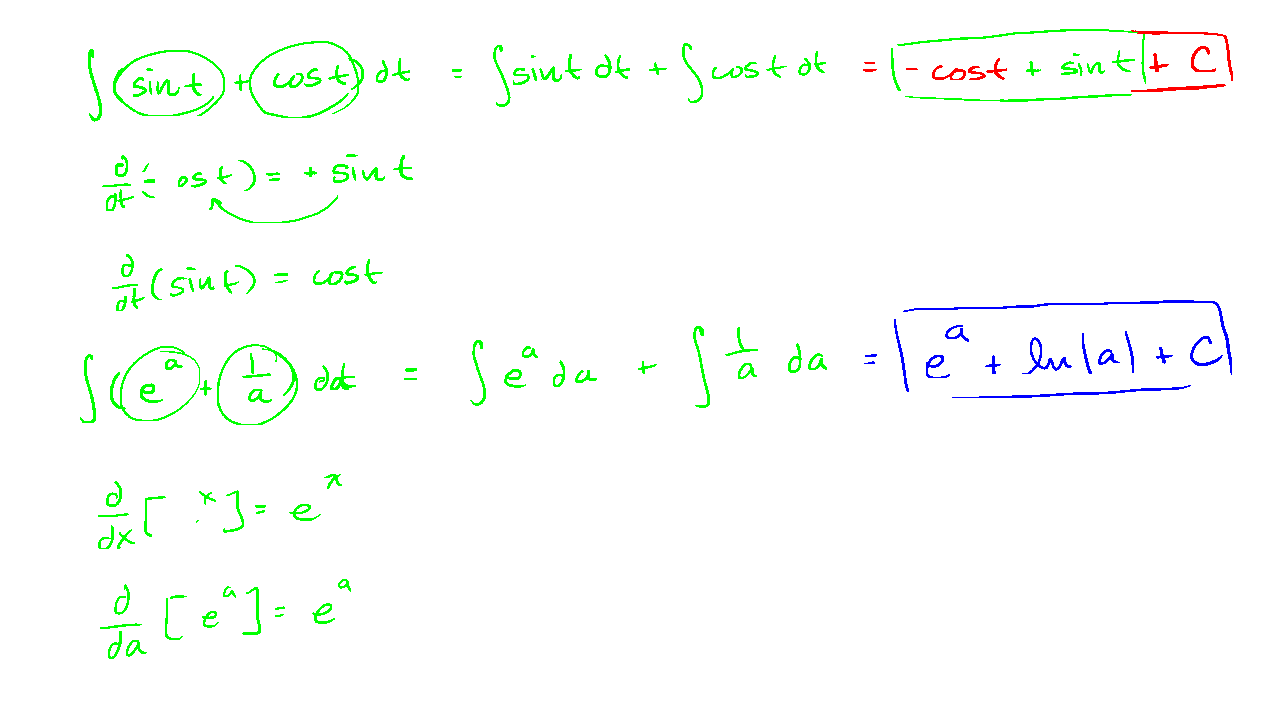 ∫(sin t + cos t) dt = ∫sin t dt + ∫cos t dt = - cos t + sin t + C
d/dt (- os t) = + sin t
d/dt (sin t) = cos t
∫(e^a + 1/a) da = ∫e^a da + ∫1/a da = e^a + ln|a| + C
d/dx [ x ] = e^x
d/da [e^a] = e^a